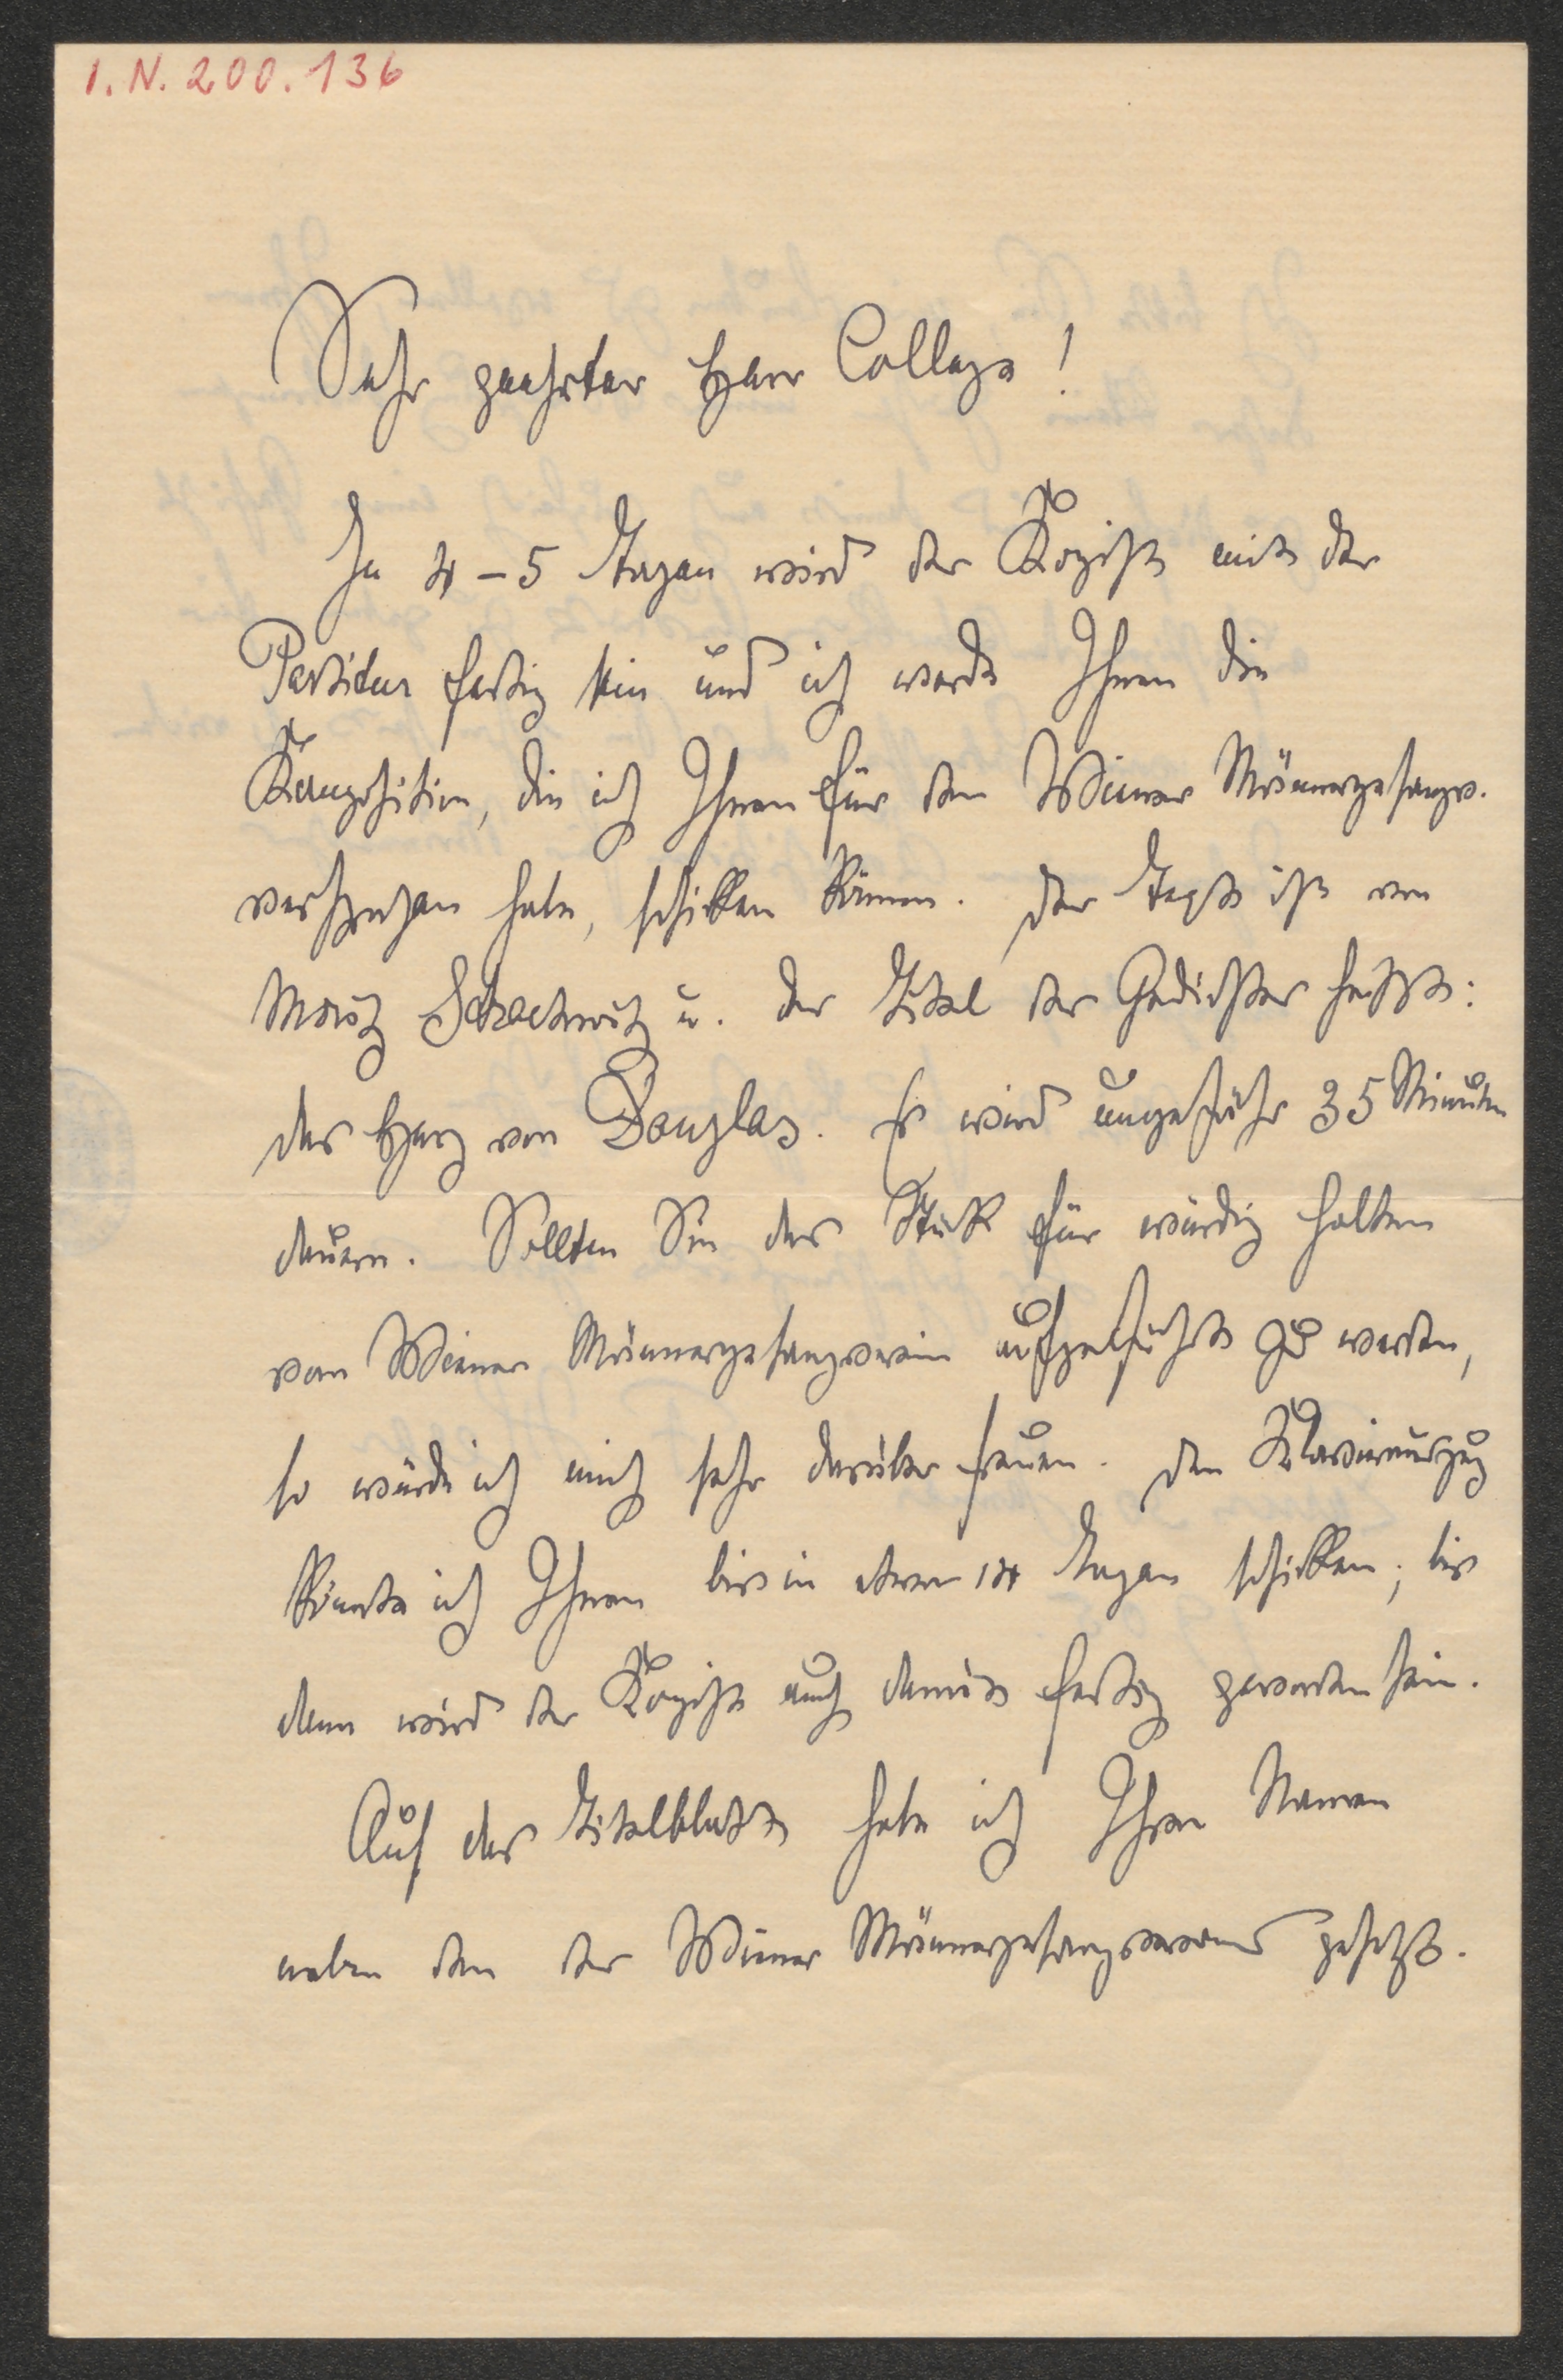 I.N. 200.136
Sehr geehrter Herr College!
In 4–5 Tagen wird der Kopist mit der
Partitur fertig sein und ich werde Ihnen die
Komposition, die ich Ihnen für den Wiener Männergesangv.
versprochen habe, schicken können. Der Text ist von
Moritz Strachwitz u. der Titel des Gedichtes heisst:
das Herz von Douglas. Es wird ungefähr 35 Minuten
dauern. Sollten Sie das Stück für würdig halten
vom Wiener Männergesangverein aufgeführt zu werden,
so würde ich mich sehr darüber freuen. Den Klavierauszug
könnte ich Ihnen bis in etwa 14 Tagen schicken; bis
dann wird der Kopist auch damit fertig geworden sein.
Auf das Titelblatt habe ich Ihren Namen
neben den des Wiener Männergesangvereins gesetzt.